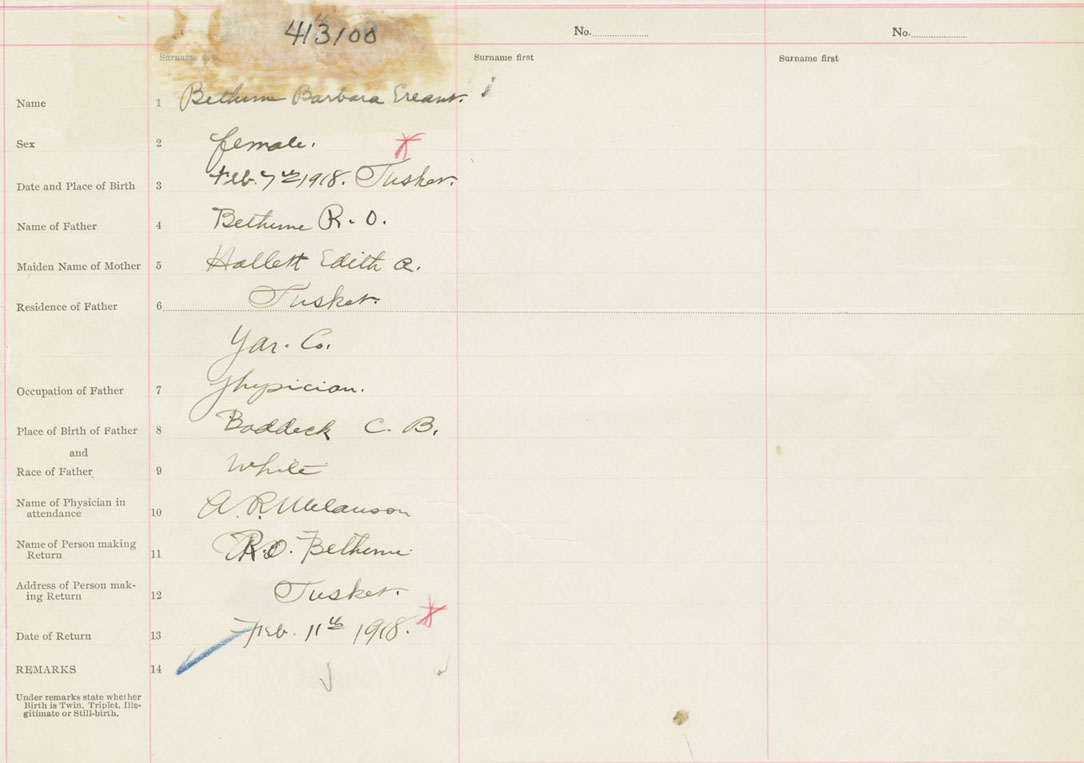 413100
No.
No.
Surname first
Surname first
Name 1 Bethune Barbara
Sex 2 female.
Date and Place of Birth 3 Feb. 7th 1918. Tusket.
Name of Father 4 Bethune R. O.
Maiden Name of Mother 5 Hallett Edith A.
Residence of Father 6 Tusket.
Yar. Co.
Occupation of Father 7 Physician.
Place of Birth of Father 8 Baddeck C. B.
and
Race of Father 9 White
Name of Physician in
attendance 10 A. R. Melanson
Name of Person making
Return 11 R. O. Bethune
Address of Person mak-
ing Return 12 Tusket.
Date of Return 13 Feb. 11th 1918.
REMARKS 14
Under remarks state whether
Birth is Twin, Triplet, Ille-
gitimate or Still-birth.